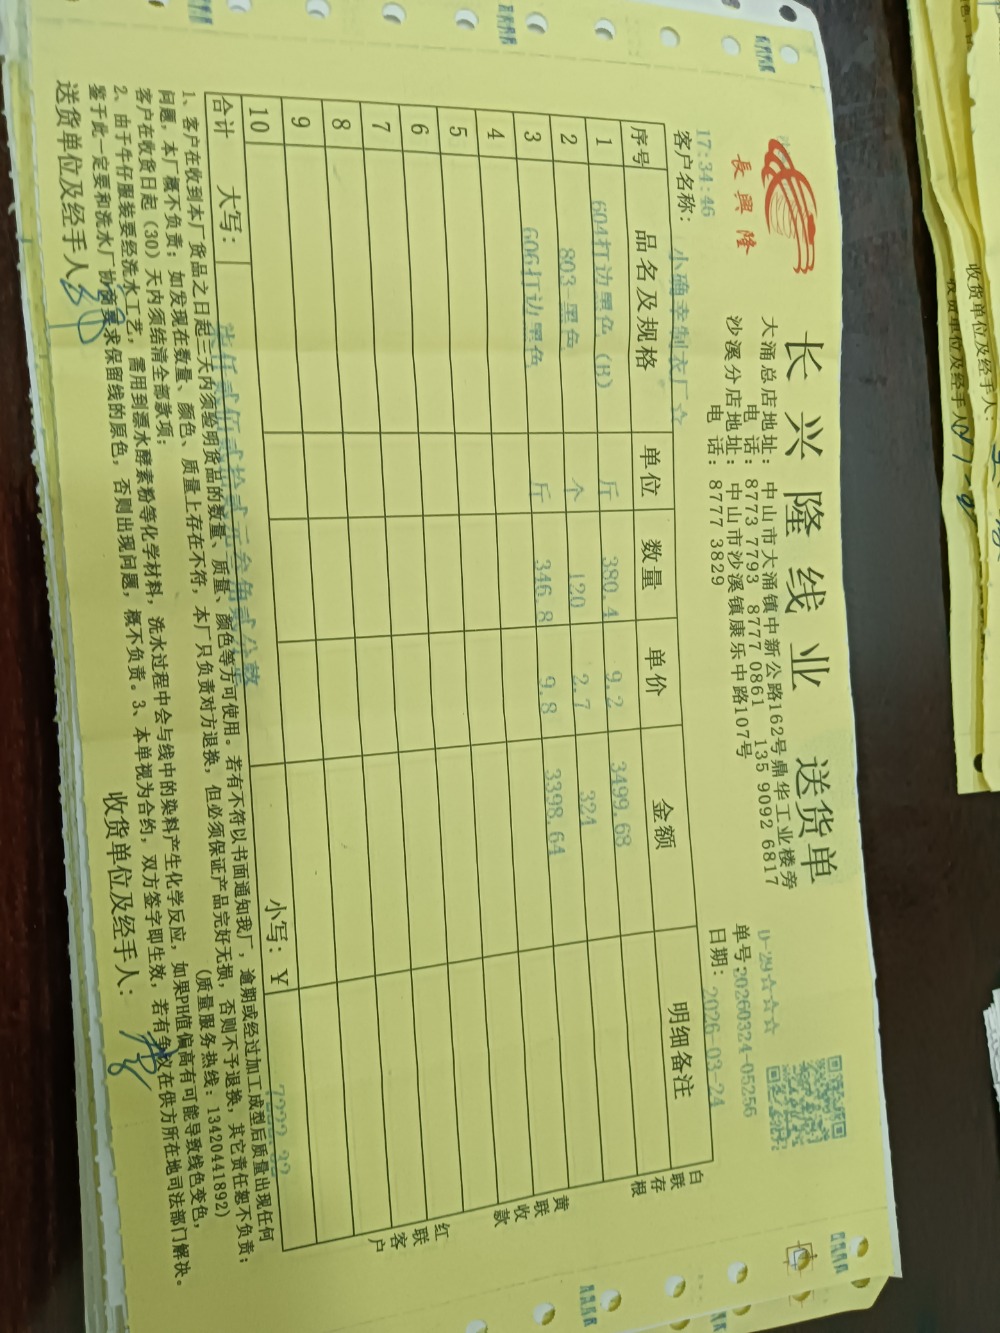 長興隆
长兴隆线业 送货单
大涌总店地址：中山市大涌镇中新公路162号鼎华工业楼旁
电 话：8773 7793 8777 0861 135 9092 6817
沙溪分店地址：中山市沙溪镇康乐中路107号
电 话：8777 3829
D-29☆☆☆
单号：20260324-05256
17:34:46
客户名称：小确幸制衣厂☆
日期：2026-03-24
序号 品名及规格 单位 数量 单价 金额 明细备注
1 604打边黑色（B） 斤 380.4 9.2 3499.68
2 803-黑色 个 120 2.7 324
3 606打边黑色 斤 346.8 9.8 3398.64
4
5
6
7
8
9
10
合计 大写：柒仟贰佰贰拾贰元叁角贰分整 小写：¥ 7222.32
1、客户在收到本厂货品之日起三天内须验明货品的数量、质量、颜色等方可使用。若有不符以书面通知我厂，逾期或经过加工成型后质量出现任何
问题，本厂概不负责；如发现在数量、颜色、质量上存在不符，本厂只负责对方退换，但必须保证产品完好无损，否则不予退换，其它责任恕不负责；
客户在收货日起（30）天内须结清全部款项； （质量服务热线：13420441892）
2、由于牛仔服装要经洗水工艺，需用到漂水酵素粉等化学材料，洗水过程中会与线中的染料产生化学反应，如果PH值偏高有可能导致线色变色，
鉴于此一定要和洗水厂协商要求保留线的原色，否则出现问题，概不负责。3、本单视为合约，双方签字即生效，若有争议在供方所在地司法部门解决。
送货单位及经手人： 收货单位及经手人：
白联存根
黄联收款
红联客户
收货单位及经手人：
收货单位及经手人